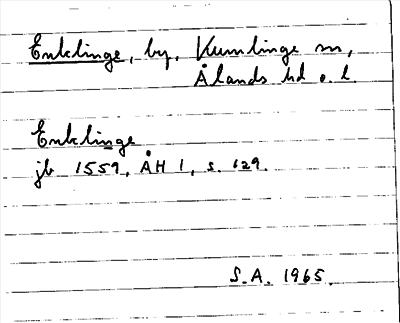 Enklinge, by, Kumlinge sn,
Ålands hd o. l.
Enklinge
jb 1559, ÅH 1, s. 129.
S.A. 1965.